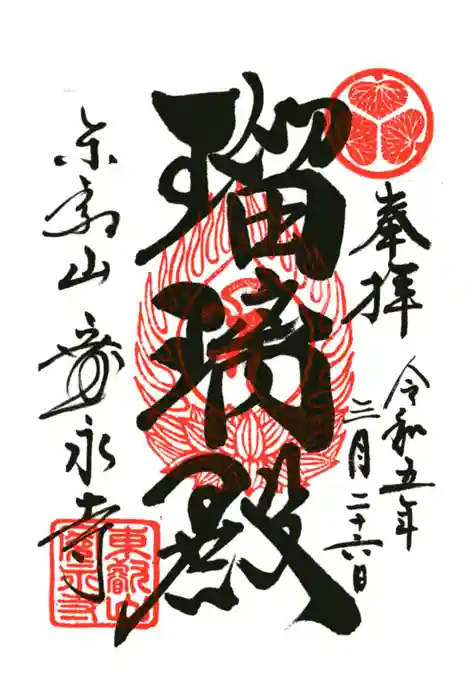 奉拝
令和五年
三月二十六日
瑠璃殿
東叡山寛永寺
東叡山
寛永寺